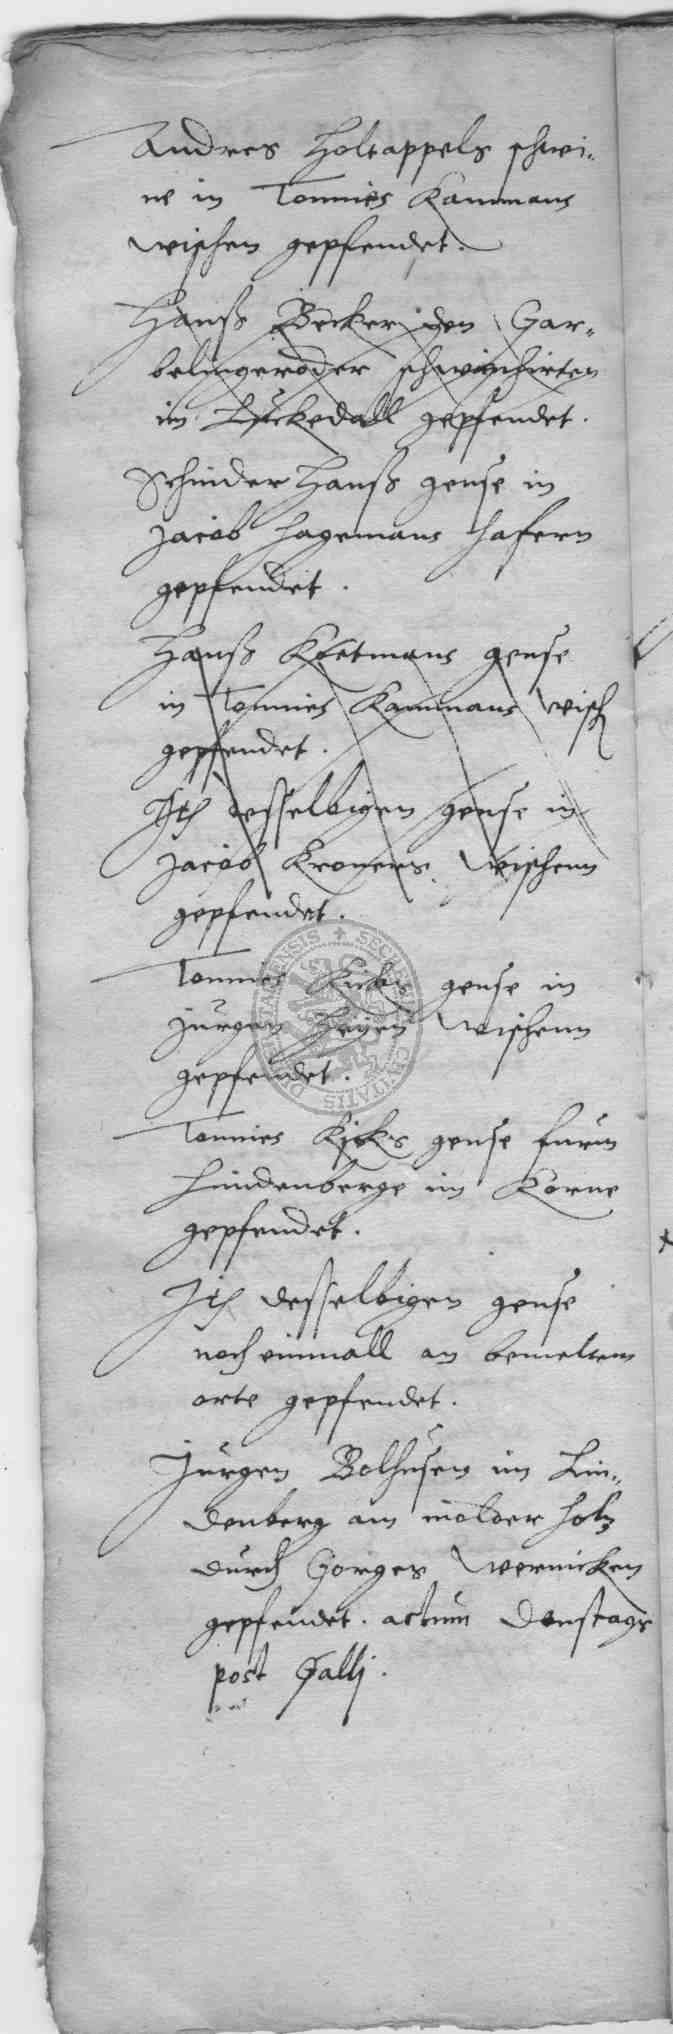 Andres Holtappels schwi„
ne in Tonnies Kammans
wischen gepfendet.
Hanß Becker den Gar„
belingeroder schwinhirten
im Luckedall gepfendet.
Schnider Hanß gense in
Jacob Hagemans hafern
gepfendet.
Hanß Koetmans gense
in Tonnies Kammans wisch
gepfendet.
Ite desselbigen gense in
Jacob Kroners wischenn
gepfendet.
Tonnies Kicks gense in
Jurgen Heyen wischenn
gepfendet.
SECRETUM CIVITATIS
Tonnies Kicks gense furm
Lindenberge im Korne
gepfendet.
Ite desselbigen gense
noch einmall an bemeltem
orte gepfendet.
Jurgen Bolhusen im Lin„
denberg am molder holtz
durch Gorges Wernicken
gepfendet. actum Denstags
post Galli.